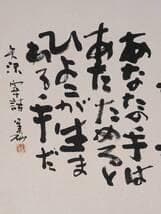 あなたの手は
あたためると
ひよこが生ま
れる手だ